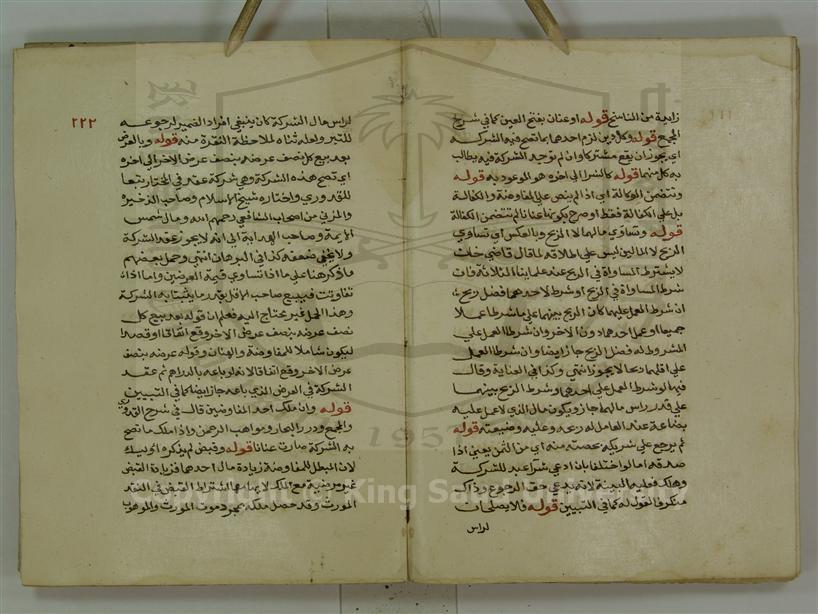 زايدة من الناسخ قوله او عنان بفتح العين كما في شرح
المجمع قوله وكل دين لزم احدهما بما تصح فيه الشركة
اي يجوز ان يقع مشتركا وان لم توجد الشركة فيه يطالب
به كل منهما قوله كالشرا الى اخره هو الموعود به قوله
وتتضمن الوكالة اي اذ الم ينص على المفاوضة والكفالة
بل على الكفالة فقط او صرح بكونها عنانا لم تتضمن الكفالة
قوله وتساوي مالهما لا الربح وبالعكس اي تساوي
الربح لا المالين ليس على اطلاقه لما قال قاضي خان
لا يشترط المساواة في الربح عند علماينا الثلاثة فان
شرط المساواة في الربح او شرط لاحدهما فضل ربح
ان شرط العمل عليهما كان الربح بينهما على ما شرطا عملا
جميعا او عمل احدهما دون الاخر وان شرطا العمل على
المشروط له فضل الربح جاز ايضا وان شرطا العمل
على اقلهما ربحا لا يجوز انتهى وكذا في العناية وقال
فيها لو شرط العمل على احدهما وشرط الربح بينهما
على قدر راس مالهما جاز ويكون مال الذي لا عمل عليه
بضاعة عند العامل له ربحه وعليه وضيعته قوله
ثم يرجع على شريكه بحصته منه اي من الثمن يعني اذا
صدقه اما لو اختلفا بان ادعى شرآ عبد للشركة
وهلك فعليه البينة لانه يدعي حق الرجوع وذاك
منكر فالقول له كما في التبيين قوله فلا يصلحان
لراس
٢٢٢
لراس مال الشركة كان ينبغي افراد الضمير لرجوعه
للتبر ولعله ثناه لملاحظة النقرة منه قوله وبالعرض
بعد بيع كل نصف عرضه بنصف عرض الاخر الى اخره
اي تصح هذه الشركة وهي شركة عقد في المختار تبعا
للقدوري واختاره شيخ الاسلام وصاحب الذخيرة
والمزني من اصحاب الشافعي رحمهم الله ومال شمس
الايمة وصاحب الهداية الى انه لا يجوز عقد الشركة
ولا يخفى ضعفه كذا في البرهان انتهى وحمل بعضهم
ما ذكر هنا على ما اذا تساوي قيمة العرضين واما اذا
تفاوتت فيبيع صاحب الاقل بقدر ما يثبت به الشركة
وهذا الحمل غير محتاج اليه فعلم ان قوله بعد بيع كل
نصف عرضه بنصف عرض الاخر وقع اتفاقا او قصدا
ليكون شاملا للمفاوضة والعنان وقوله عرضه بنصف
عرض الاخر وقع اتفاقا لانه لو باعه بالدراهم ثم عقد
الشركة في العرض الذي باعه جاز ايضا كما في التبيين
قوله وان ملك احد المفاوضين قال في شرح القدوري
والمجمع ودرر البحار ومواهب الرحمن واذا ملك ما تصح
به الشركة صارت عنانا قوله وقبض لم يذكره اوليك
لان المبطل للمفاوضة زيادة مال احدهما فزيادة القبض
غير مرضية مع الملك لايهامها اشتراط القبض في النقد
الموروث وقد حصل ملكه بمجرد موت المورث والموهوب